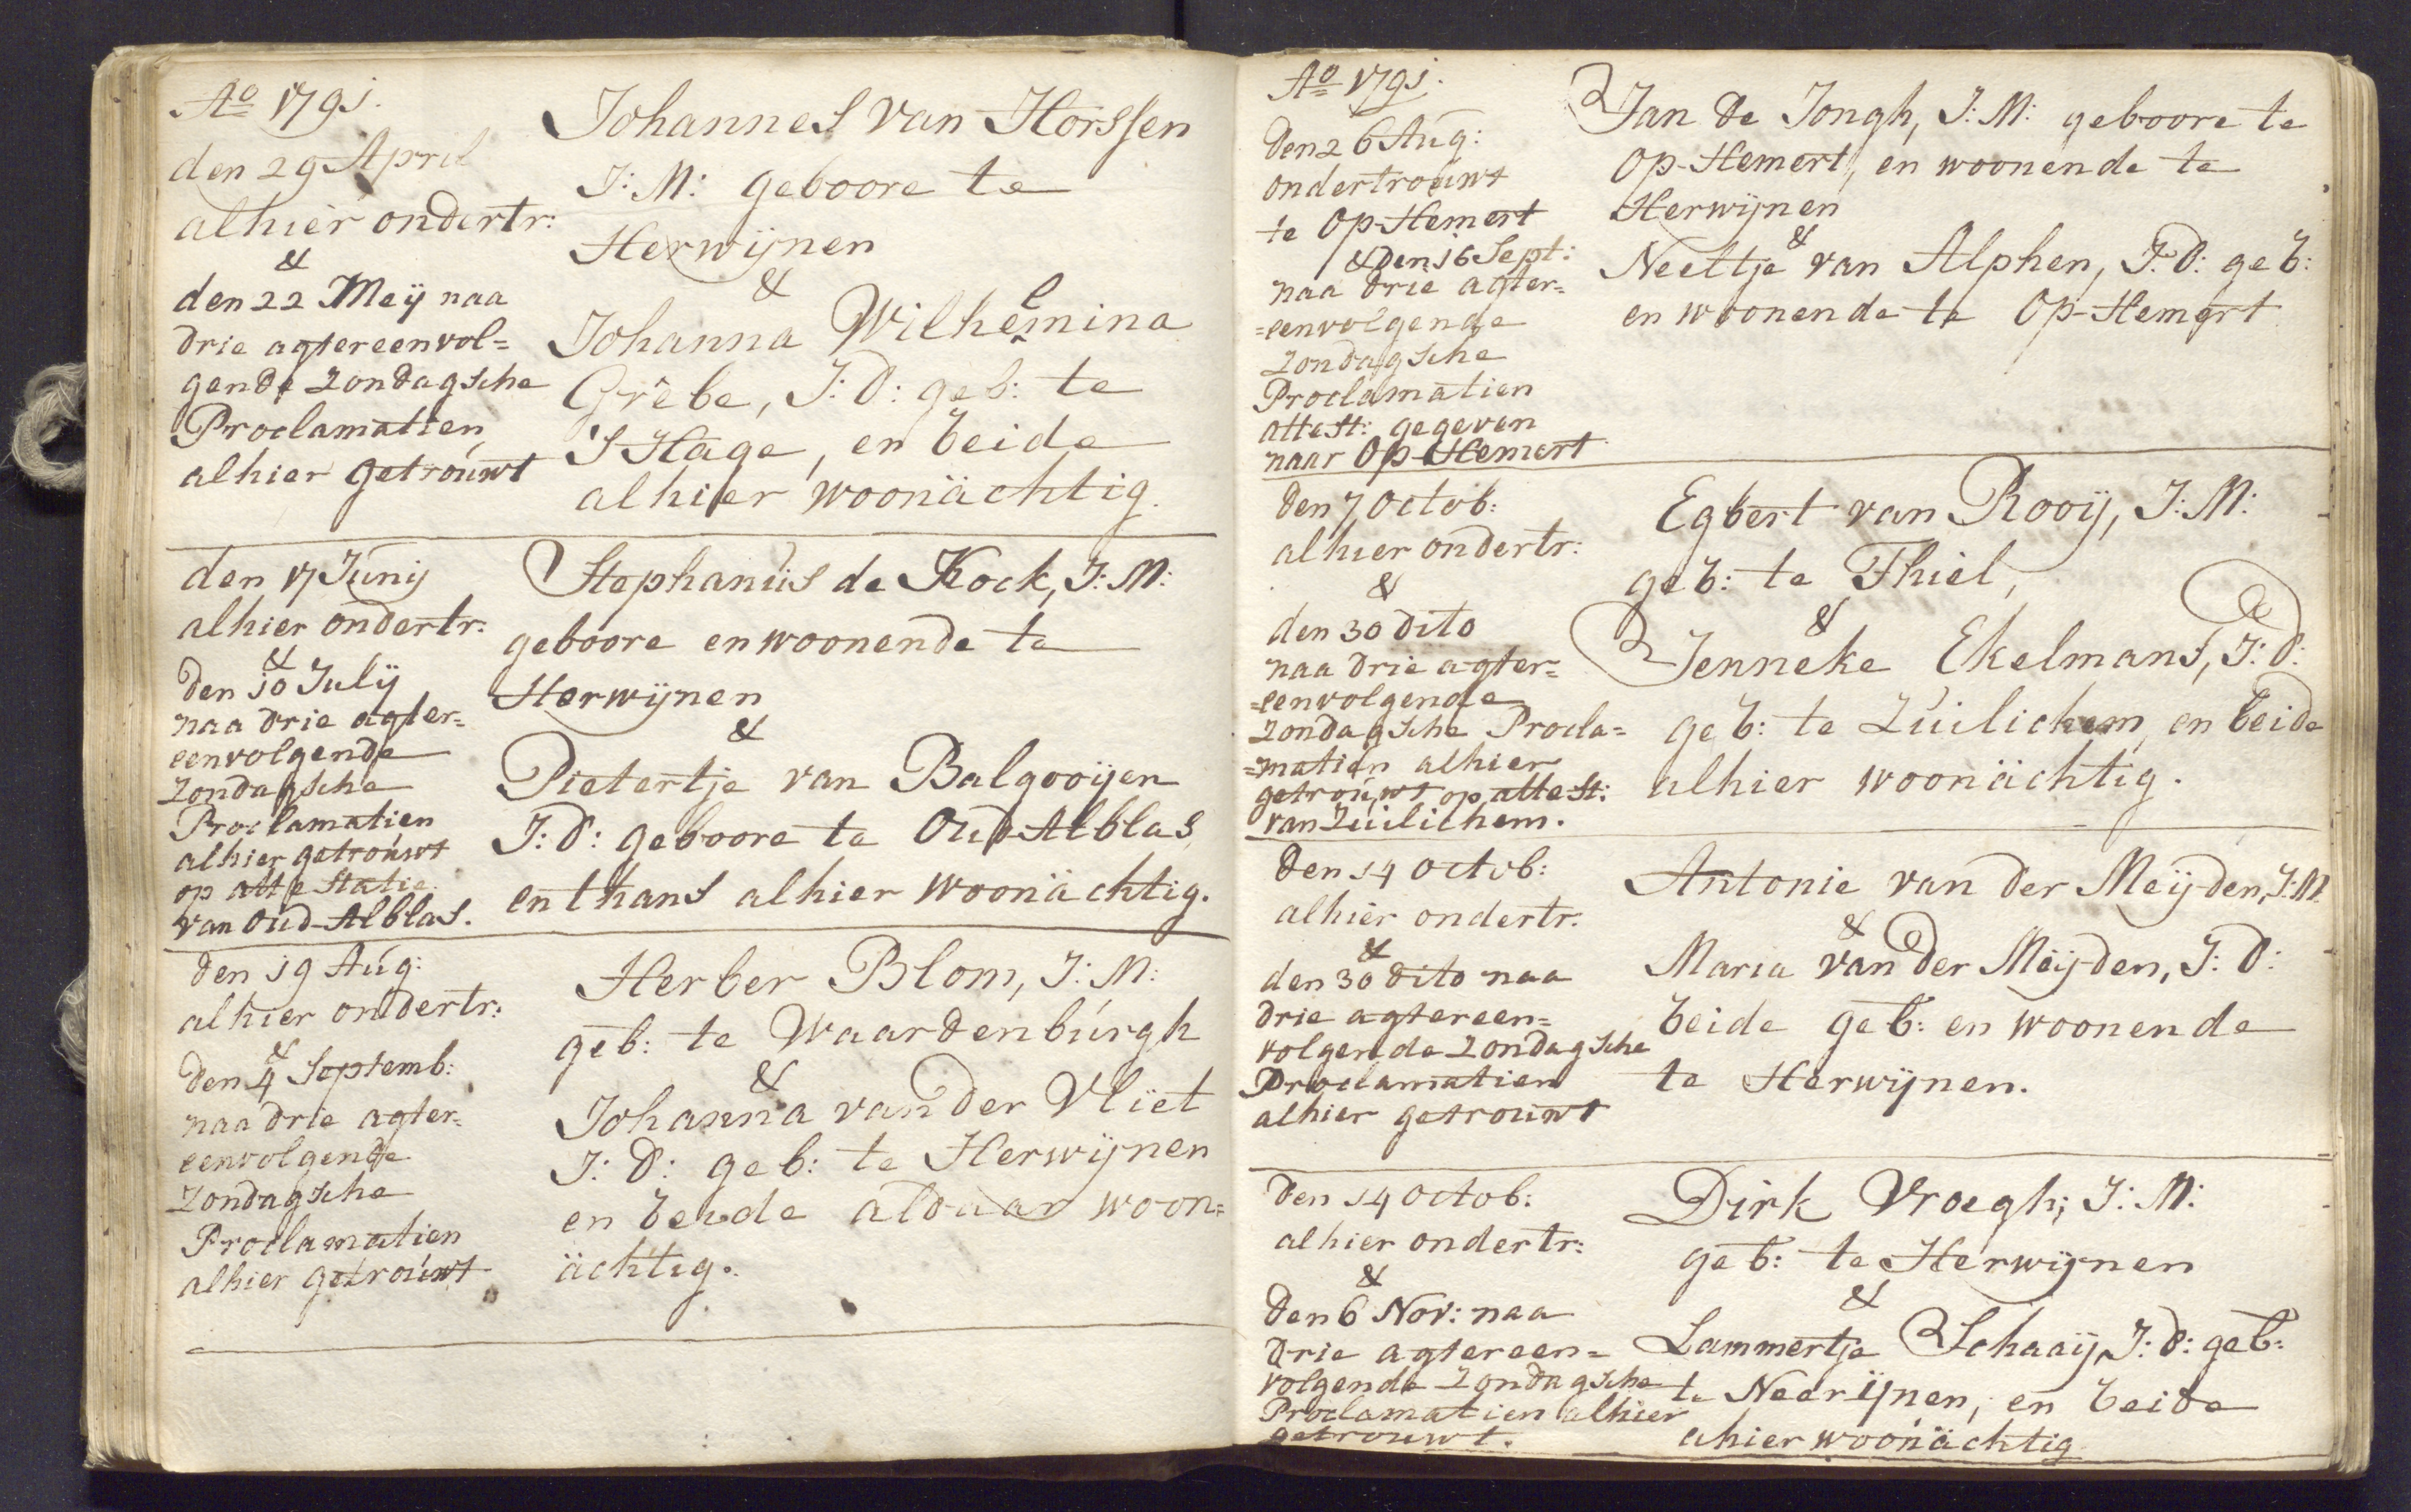 Ao 1791.
den 29 April
alhier ondertr:
&
den 22 Meij naa
drie agtereenvol=
gende Zondagsche
Proclamatien
alhier getrouwt
Johannes van Horssen
J: M: geboore te
Herwijnen
&
Johanna Wilhelmina
Grebe, J: D: geb: te
S Hage, en beide
alhier woonächtig.
den 17 Junij
alhier ondertr:
&
den 10 Julij
naa drie agter=
eenvolgende
Zondagsche
Proclamatien
alhier getrouwt
op attestatie
van Oud-Alblas.
Stephanus de Kock, J: M:
geboore en woonende te
Herwijnen
&
Pietertje van Balgooijen
J: D: geboore te Oud-Alblas,
en thans alhier woonächtig.
den 19 Aug:
alhier ondertr:
&
den 4 Septemb:
naa drie agter=
eenvolgende
Zondagsche
Proclamatien
alhier getrouwt
Herber Blom, J: M:
geb: te Waardenburgh
&
Johanna van der Vliet
J: D: geb: te Herwijnen
en beide aldaar woon=
ächtig.
Ao 1791.
den 26 Aug:
ondertrouwt
te Op-Hemert
& den 16 Sept:
naa drie agter=
=eenvolgende
Zondagsche
Proclamatien
attest: gegeven
naar Op-Hemert
Jan de Jongh, J: M: geboore te
Op-Hemert, en woonende te
Herwijnen
&
Neeltje van Alphen, J: D: geb:
en woonende te Op-Hemert
den 7 Octob:
alhier ondertr:
&
den 30 dito
naa drie agter=
=eenvolgende
Zondagsche Procla=
=matien alhier
getrouwt op attest:
van Zuilichem.
Egbert van Rooij, J: M:
geb: te Thiel,
&
Jenneke Ekelmans, J: D:
geb: te Zuilichem, en beide
alhier woonächtig.
den 14 Octob:
alhier ondertr:
&
den 30 dito naa
drie agtereen=
volgende Zondagsche
Proclamatien
alhier getrouwt
Antonie van der Meijden, J: M:
&
Maria van der Meijden, J: D:
beide geb: en woonende
te Herwijnen.
den 14 Octob:
alhier ondertr:
&
den 6 Nov: naa
drie agtereen=
volgende Zondagsche
Proclamatien alhier
getrouwt.
Dirk Vroegh, J: M:
geb: te Herwijnen
&
Lammertje Schaaij, J: D: geb:
te Neerijnen, en beide
ahier woonächtig